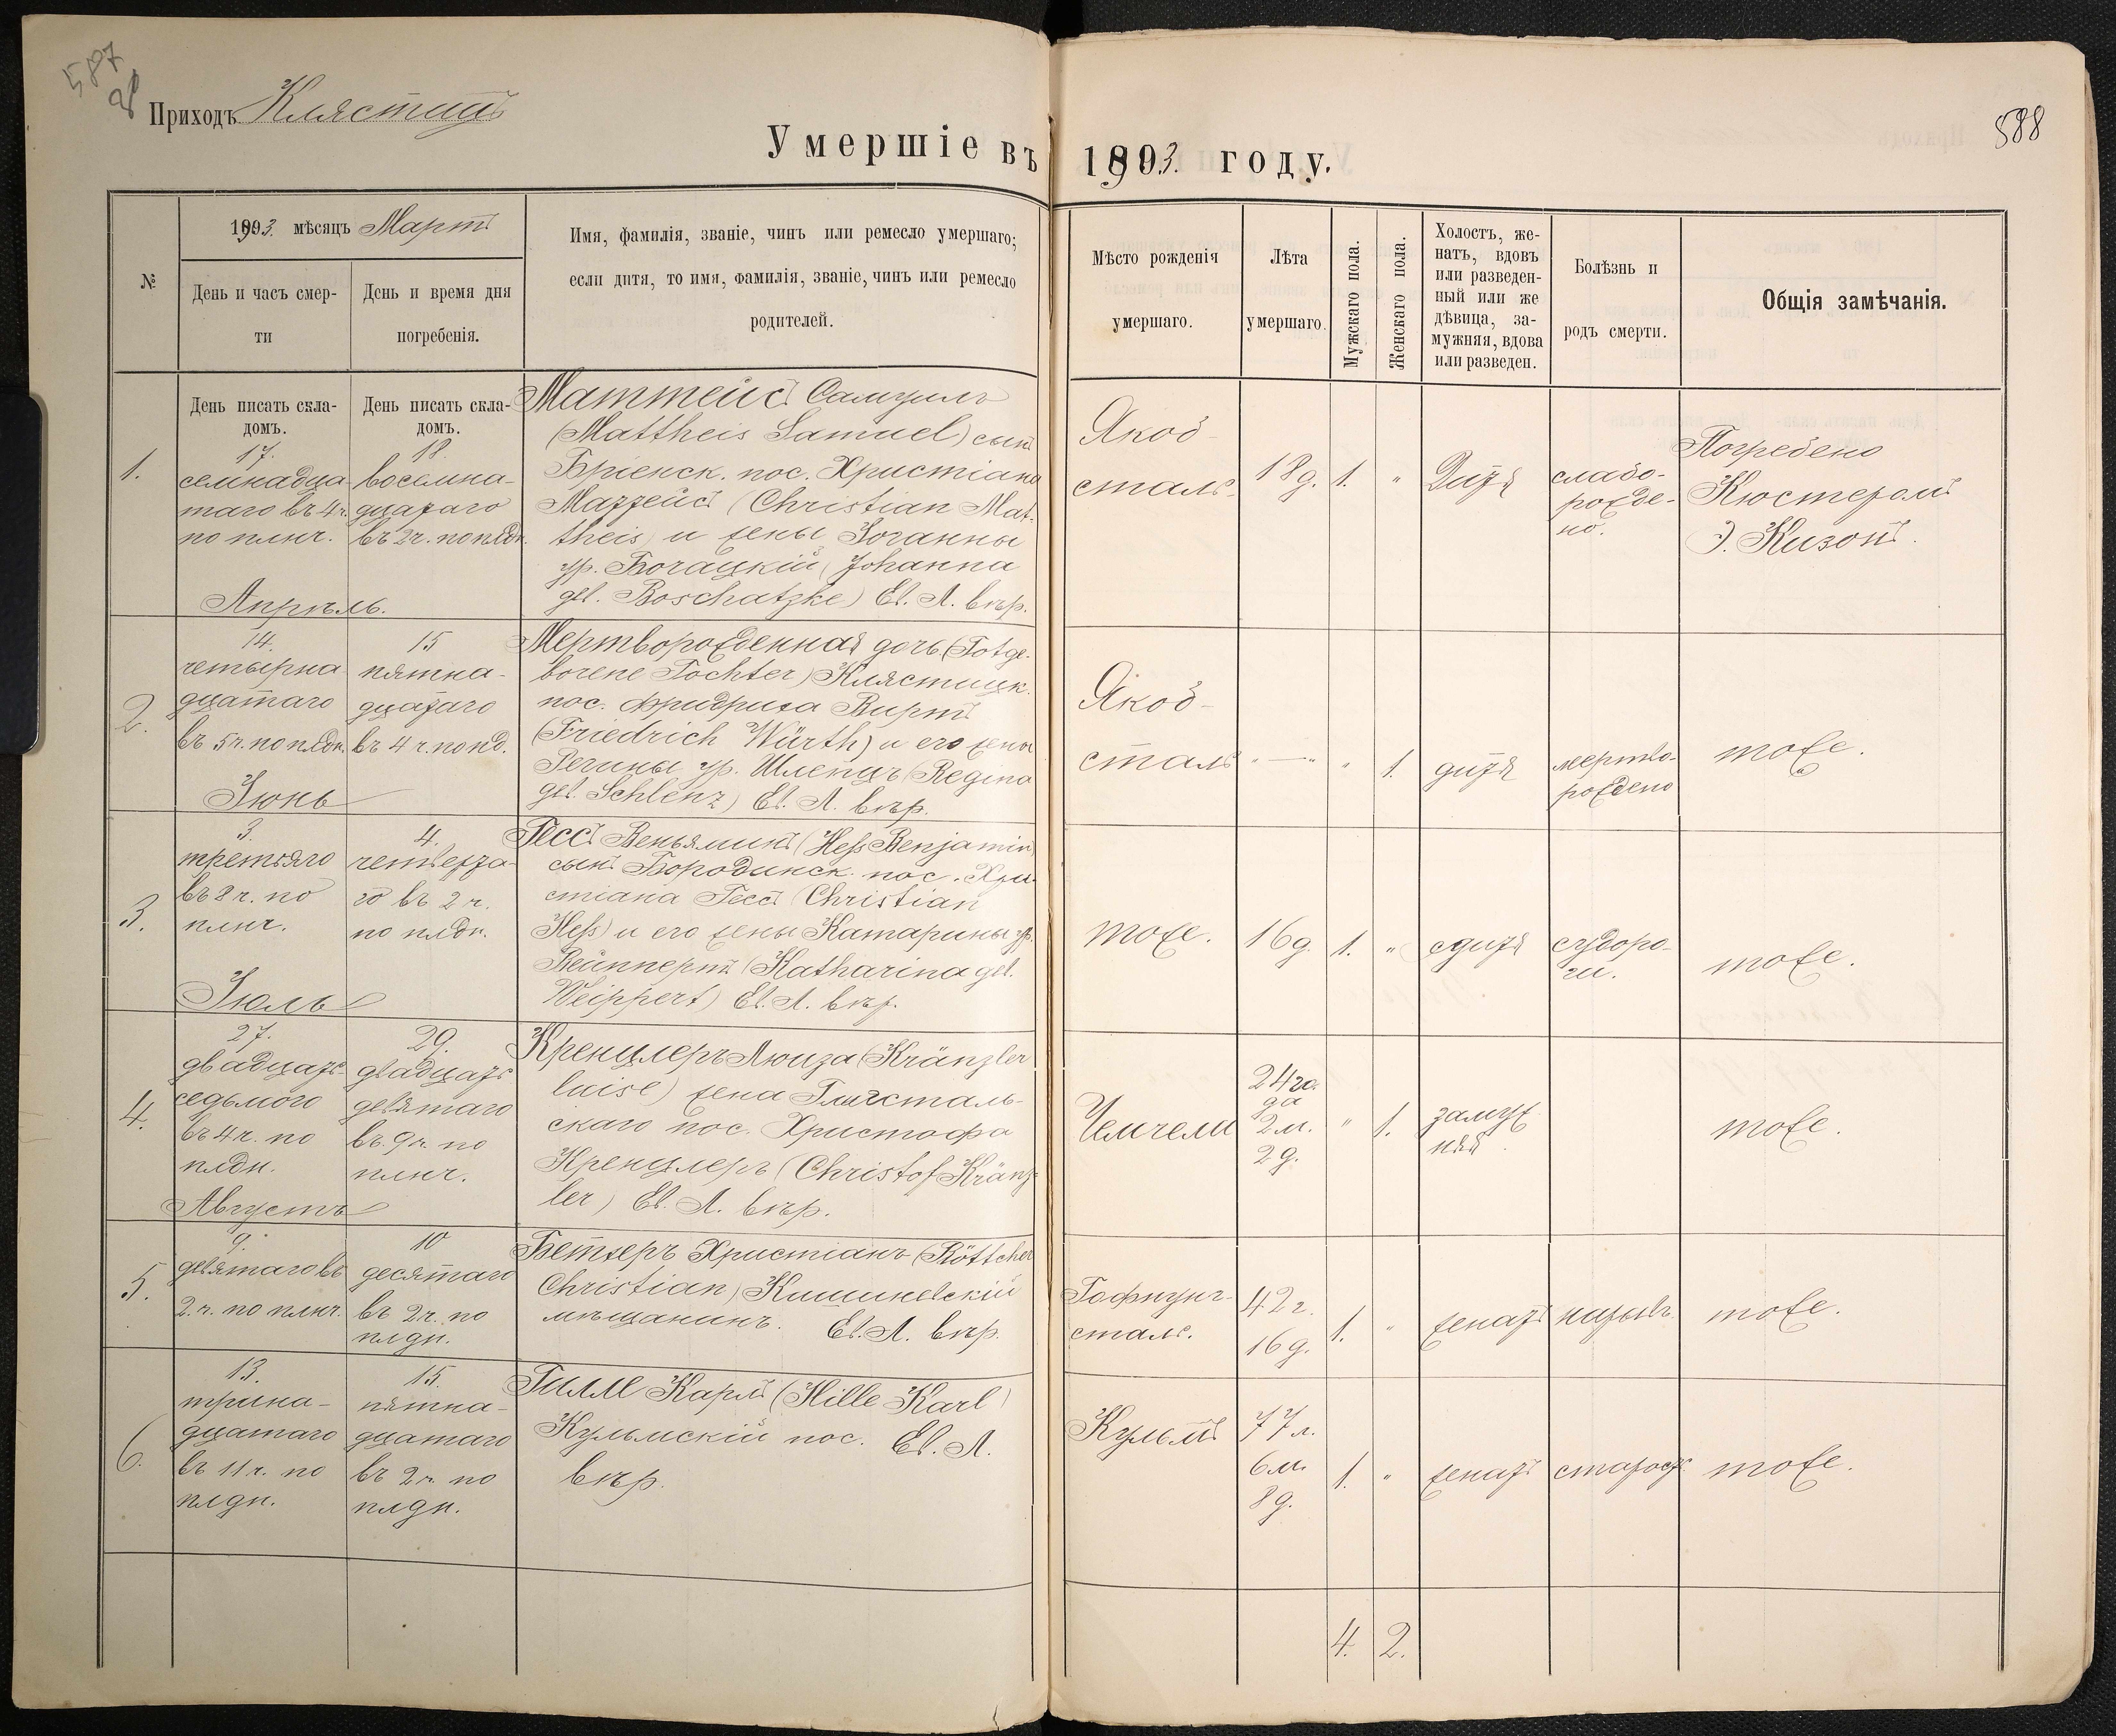 587
Приходъ Клястицъ
588
Умершіе въ 1903. году.
№
1903. мѣсяцъ Мартъ
День и часъ смер-
ти
День и время дня
погребенія.
Имя, фамилія, званіе, чинъ или ремесло умершаго;
если дитя, то имя, фамилія, званіе, чинъ или ремесло
родителей.
Мѣсто рожденія
умершаго.
Лѣта
умершаго.
Мужскаго пола.
Женскаго пола.
Холостъ, же-
натъ, вдовъ
или разведен-
ный или же
дѣвица, за-
мужняя, вдова
или разведен.
Болѣзнь и
родъ смерти.
Общія замѣчанія.
День писать скла-
домъ.
День писать скла-
домъ.
1.
17.
семнадца-
таго въ 4 ч.
по плнч.
18.
восемна-
дцатаго
въ 2 ч. по плдн.
Маттейсъ Самуилъ
(Mattheis Samuel) сынъ
Бріенск. пос. Христіана
Маттейсъ (Christian Mat-
theis) и жены Іоганны
ур. Бошацкій (Johanna
geb. Boschatzke) Ев. Л. вѣр.
Якоб-
сталь.
18 д.
1.
"
Дитя
слабо-
рожде-
но.
Погребено
Кюстеромъ
Э. Кизонъ.
Апрѣль.
2.
14.
четырна-
дцатаго
въ 5 ч. по плдн.
15
пятна-
дцатаго
въ 4 ч. по пд.
Мертворожденная дочь (Totge-
borene Tochter) Клястицк.
пос. Фридриха Виртъ
(Friedrich Würth) и его жены
Регины ур. Шленцъ (Regina
geb. Schlenz) Ев. Л. вѣр.
Якоб-
сталь
" — "
"
1.
дитя
мертво-
рождено
тоже.
Іюнь
3.
3.
третьяго
въ 8 ч. по
плнч.
4.
четверта-
го въ 2 ч.
по плдн.
Гессъ Веньяминъ (Heß Benjamin)
сынъ Бородинск. пос. Хри-
стіана Гессъ (Christian
Heß) и его жены Катарины ур.
Вейппертъ (Katharina geb.
Weippert) Ев. Л. вѣр.
тоже.
16 д.
1.
"
дитя
судоро-
ги.
тоже.
Іюль
4.
27.
двадцать
седьмого
въ 4 ч. по
плдн.
29.
двадцать
девятаго
въ 9 ч. по
плнч.
Кренцлеръ Люиза (Kränzler
Luise) жена Глюксталь-
скаго пос. Христофа
Кренцлеръ (Christof Kränz-
ler) Ев. Л. вѣр.
Чемчели
24 го-
да
2 м.
2 д.
"
1.
замуж-
няя.
тоже.
Августъ
5.
9.
девятаго въ
2 ч. по плнч.
10
десятаго
въ 2 ч. по
плдн.
Бетхеръ Христіанъ (Böttcher
Christian) Кишиневскій
мѣщанинъ. Ев. Л. вѣр.
Гофнунг-
сталь.
42 г.
16 д.
1.
"
женатъ
нарывъ.
тоже.
6.
13.
трина-
дцатаго
въ 11 ч. по
плдн.
15.
пятна-
дцатаго
въ 2 ч. по
плдн.
Гилле Карлъ (Hille Karl)
Кульмскій пос. Ев. Л.
вѣр.
Кульмъ
77 л.
6 м.
8 д.
1.
"
женатъ
старость
тоже.
4.
2.